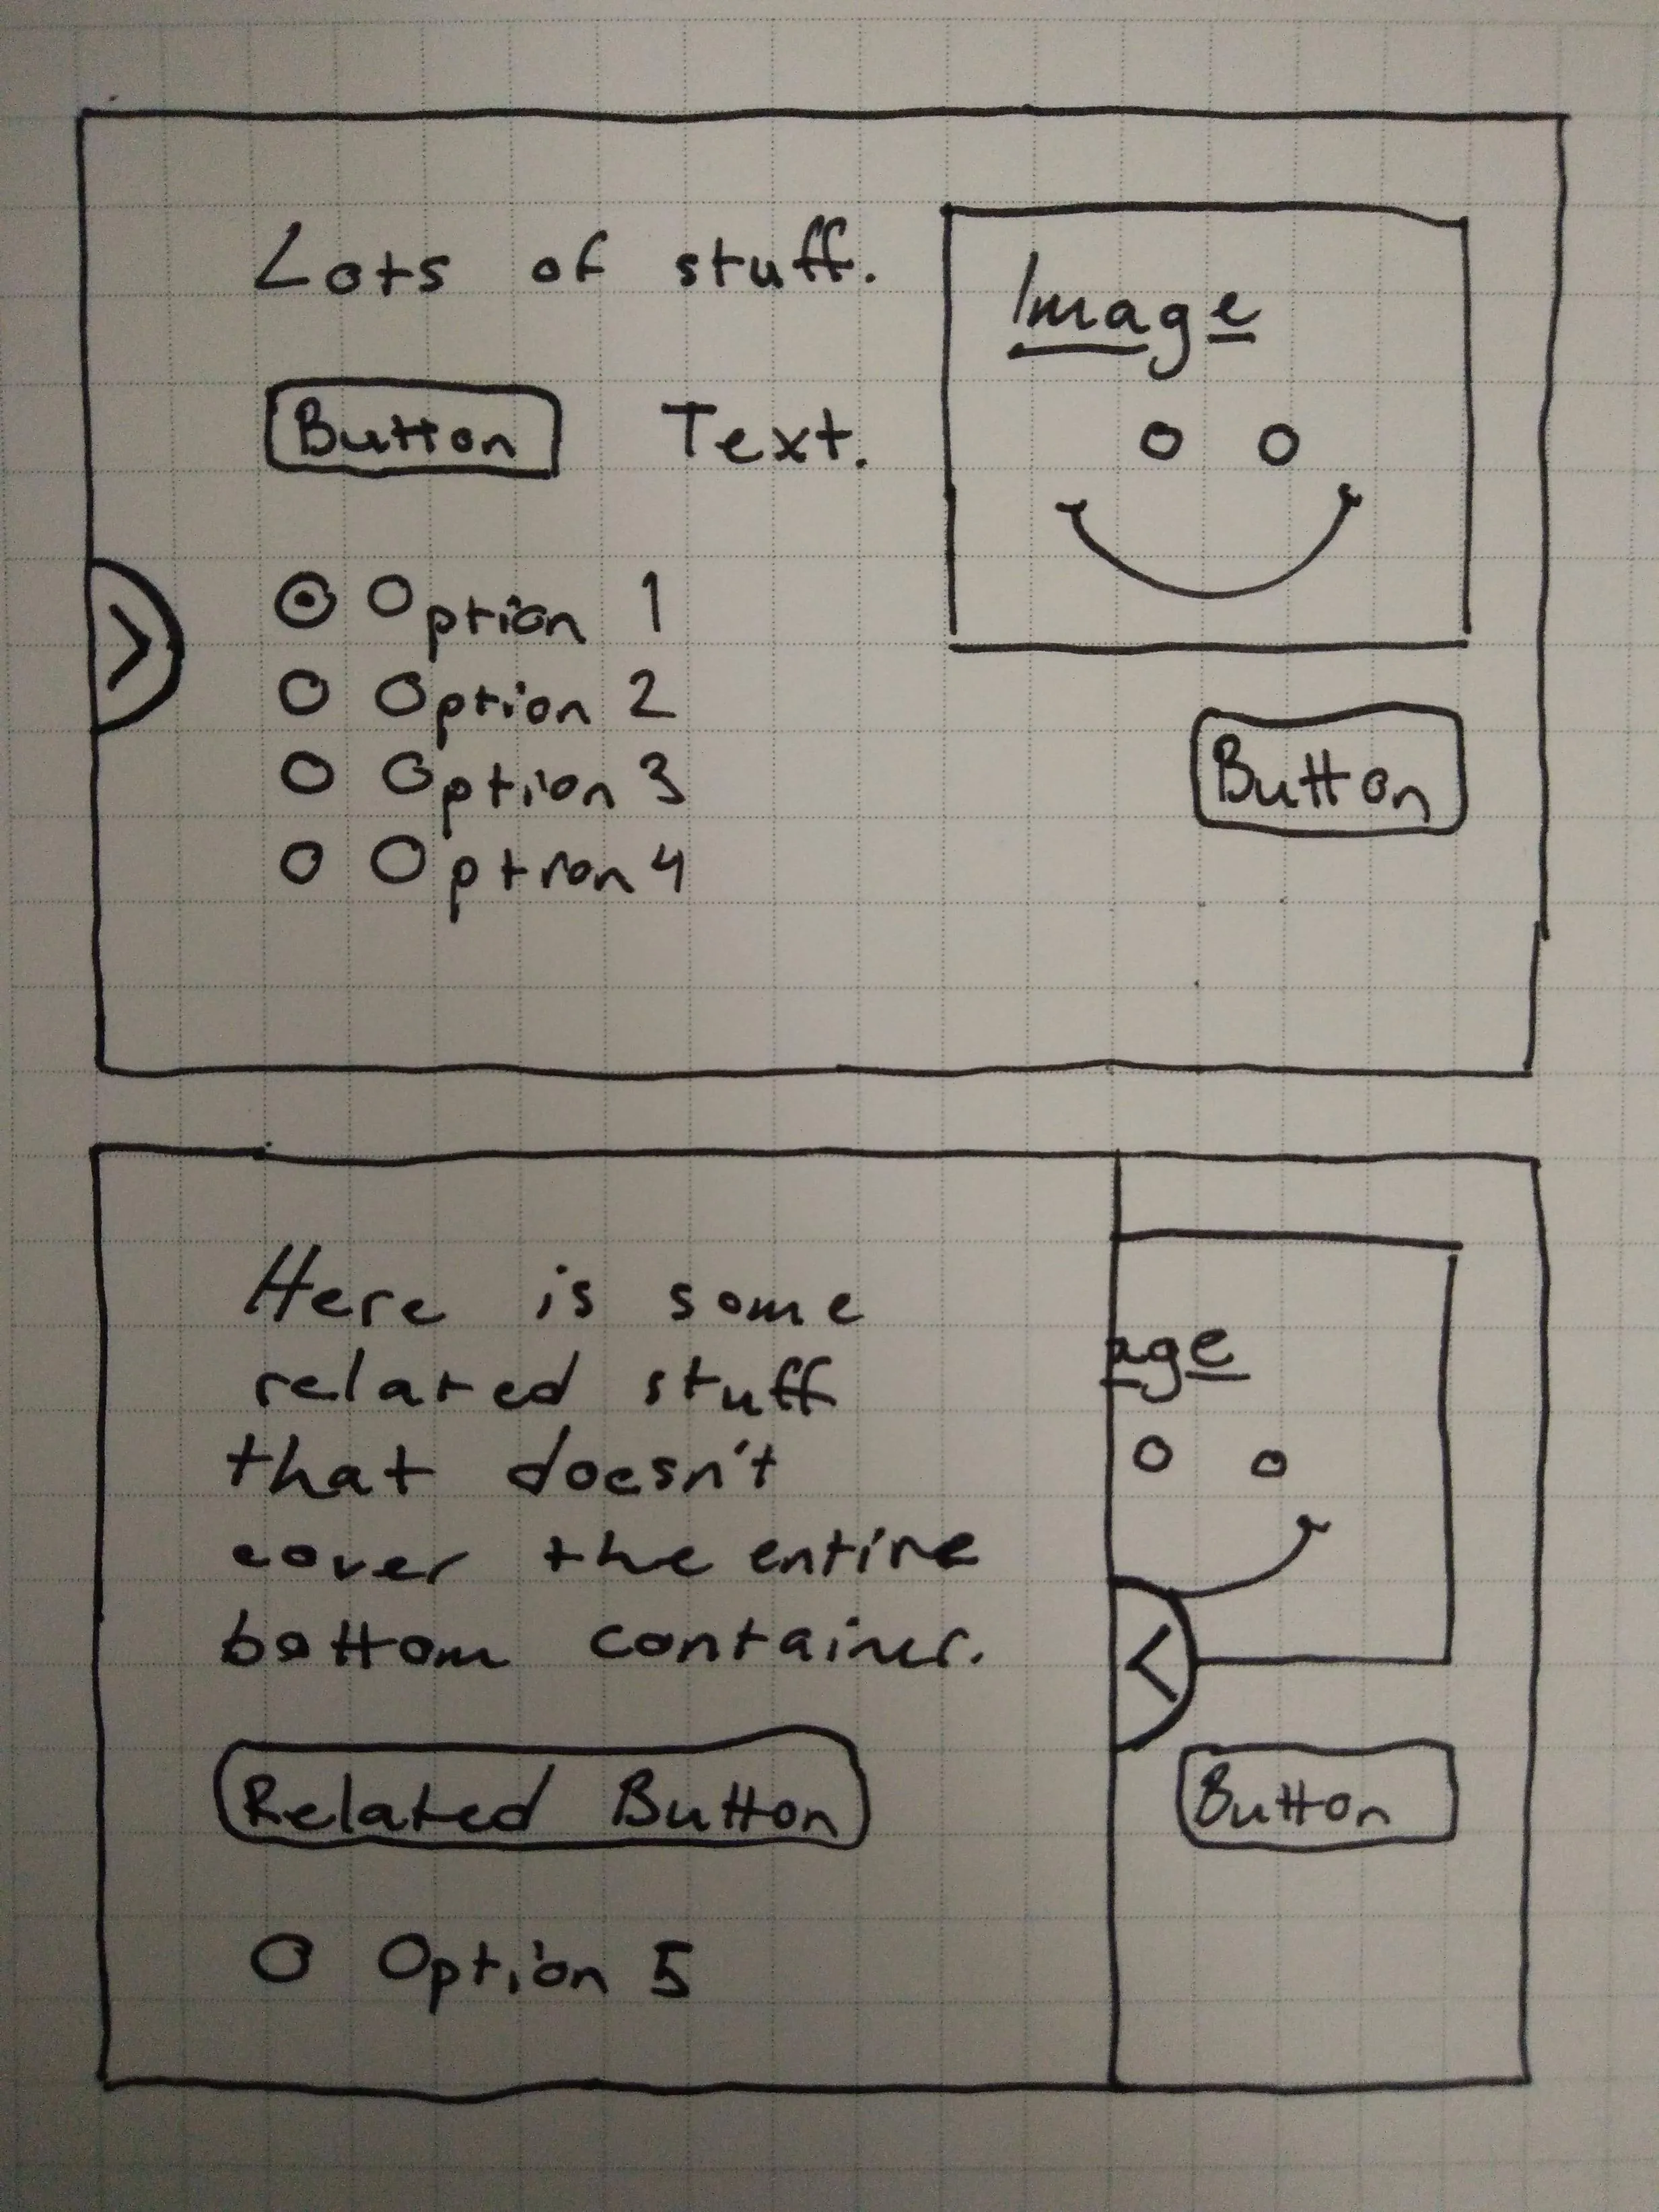 Lots of stuff.
Image
Button Text.
Option 1
Option 2
Option 3
Option 4
Button
Here is some
related stuff
that doesn't
cover the entire
bottom container.
age
Related Button
Button
Option 5